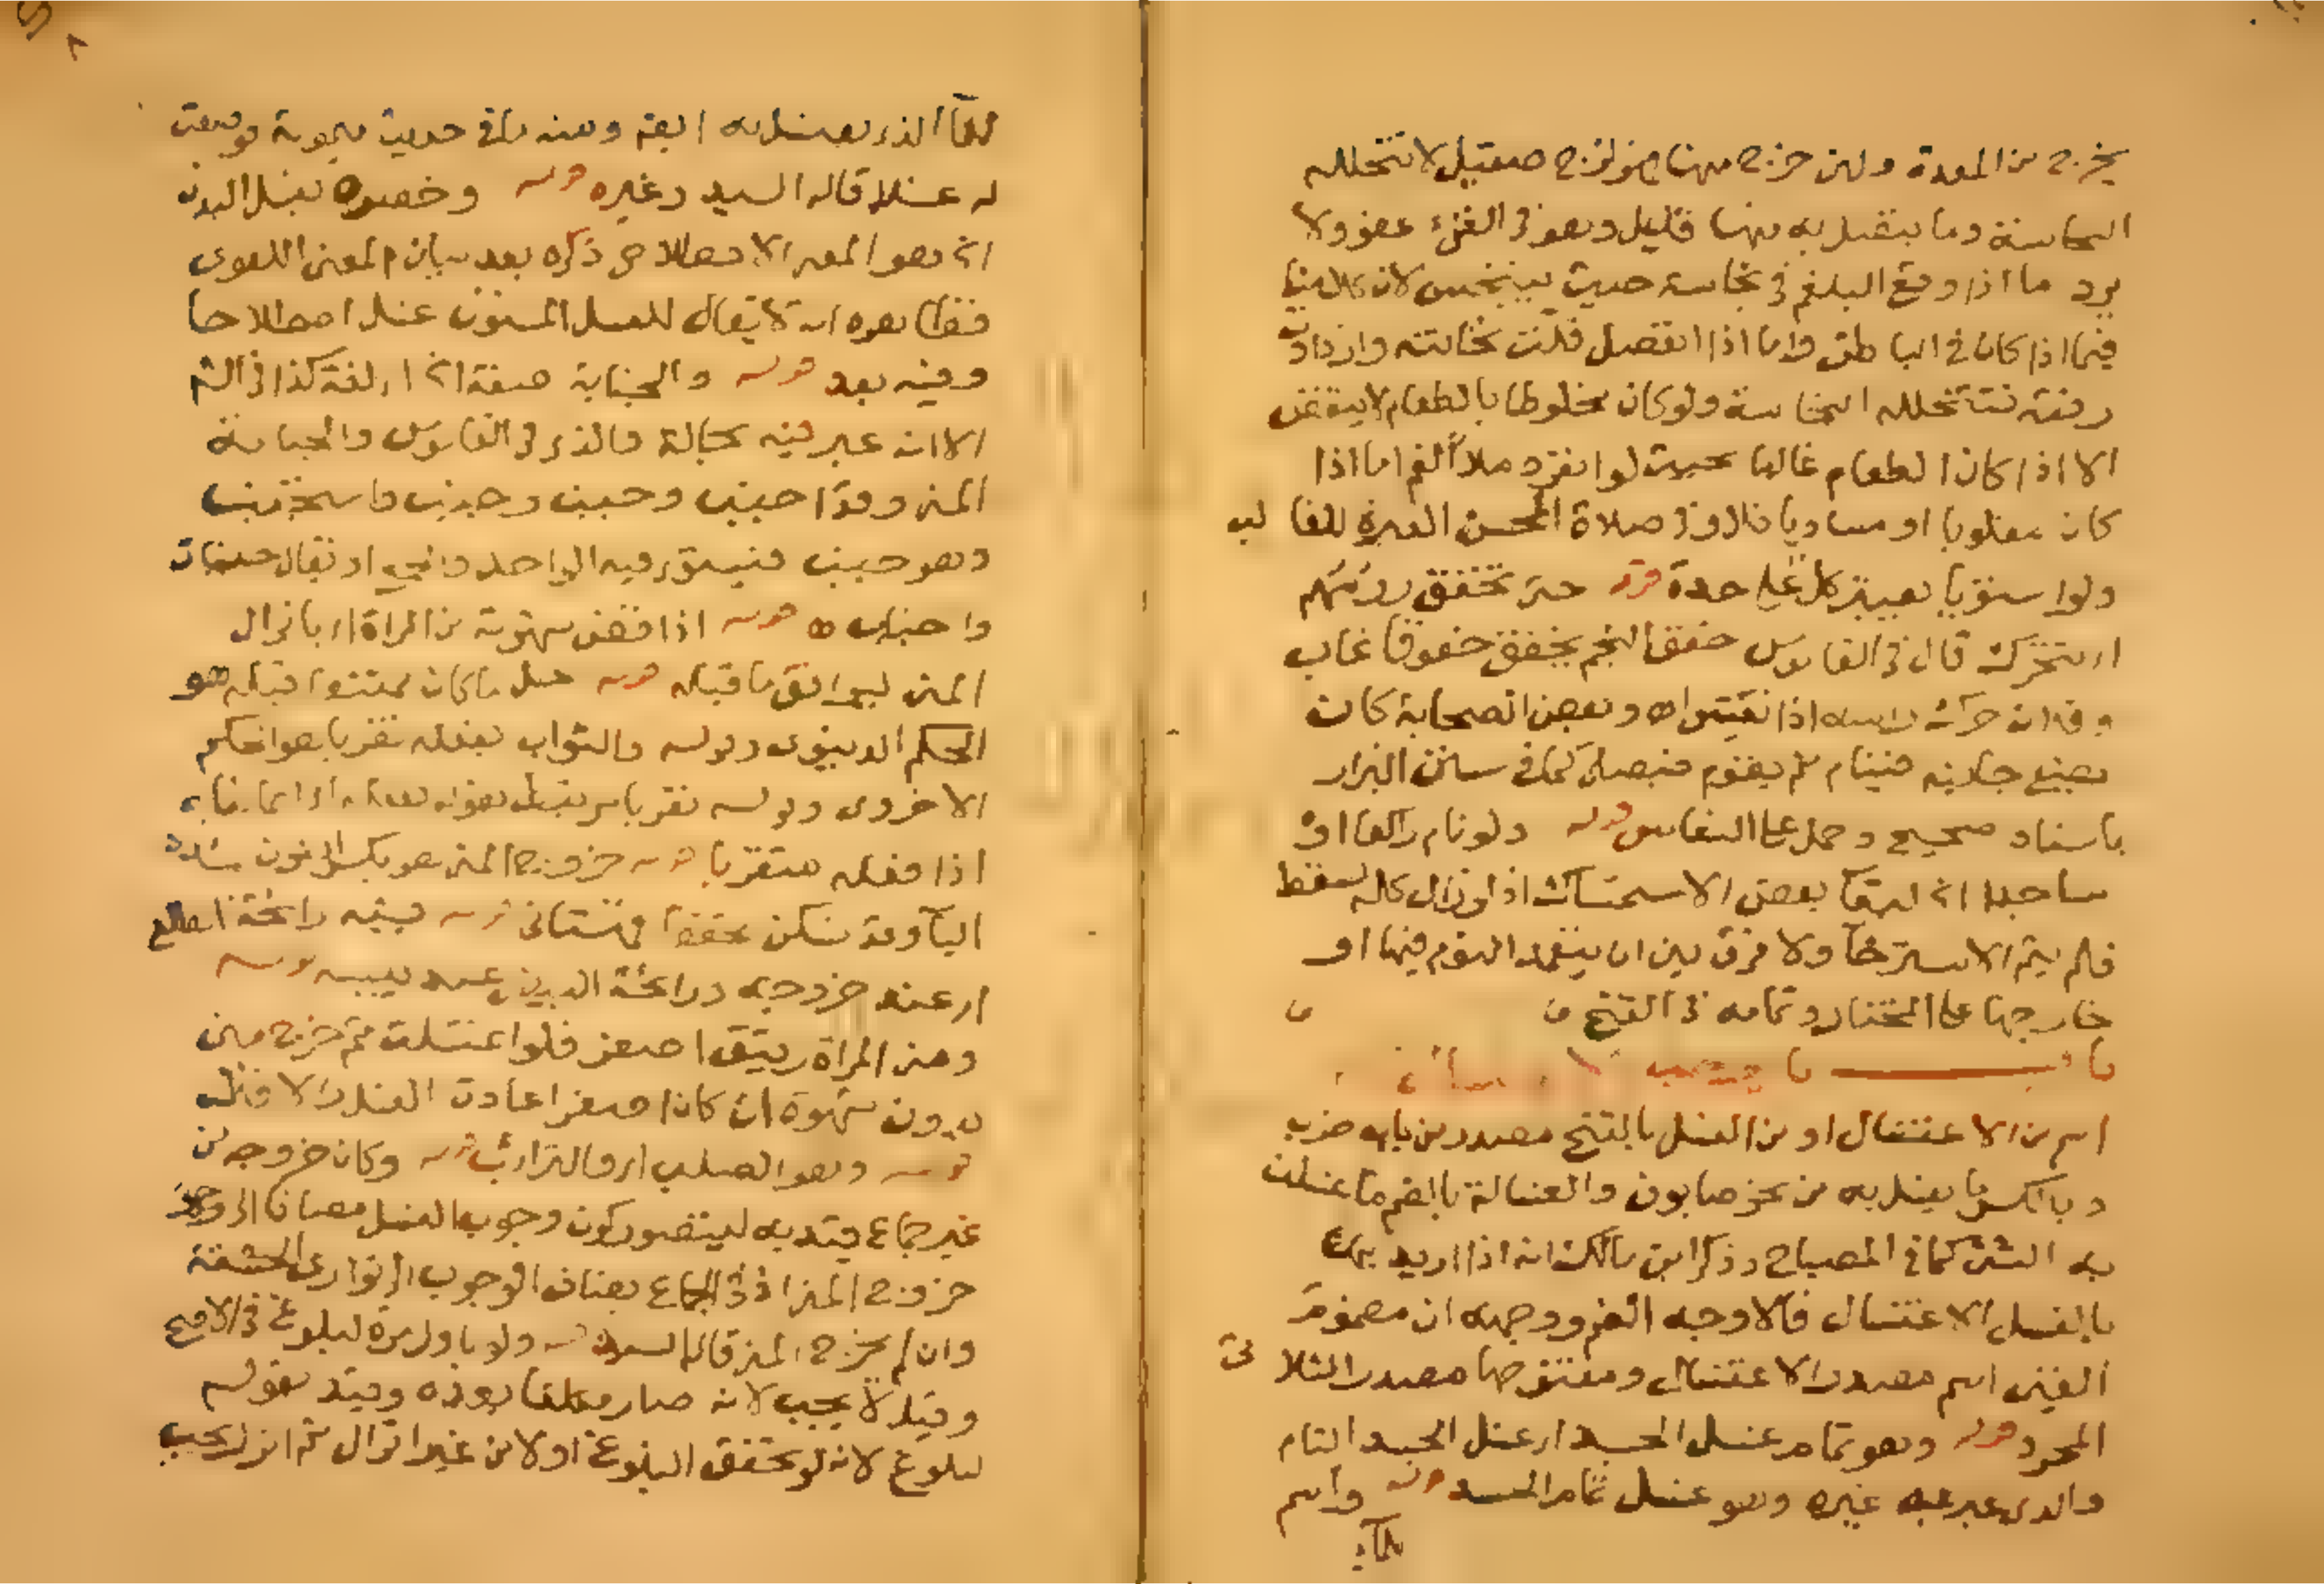 يخرج من المعدة ولئن خرج منها فهو لزج صقيل لا تتخلله
النجاسة وما يتصل به منها قليل وهو في القيء عفو ولا
يرد ما اذا وقع البلغم في نجاسة حيث يتنجس لان كلامنا
فيما اذا كان في الباطن واما اذا انفصل قلت ثخانته وازدادت
رقته فتتخلله النجاسة ولو كان مخلوطا بالطعام لا ينقض
الا اذا كان الطعام غالبا بحيث لو انفرد ملأ الفم اما اذا
كان مغلوبا او مساويا فلا وفي صلاة المحسن العبرة للغالب
ولو استويا يعتبر كل على حدة قوله حتى تخفق رؤسهم
اي تتحرك قال في القاموس خفق النجم يخفق خفوقا غاب
وفلان حرك راسه اذا نعس اه وبعض الصحابة كان
يضع جنبه فينام ثم يقوم فيصلي كما في سنن البزار
باسناد صحيح وحمل على النعاس قوله ولو نام راكعا او
ساجدا اي لبقاء بعض الاستمساك اذ لو زال كله لسقط
فلم يتم الاسترخاء ولا فرق بين ان يتعمد النوم فيها او
خارجها على المختار وتمامه في الفتح
ما يوجب الاغتسال
اسم من الاغتسال او من الغسل بالفتح مصدر من باب ضرب
وبالكسر ما يغسل به من نحو صابون والغسالة بالضم ما غسلت
به الشيء كما في المصباح وذكر ابن مالك انه اذا اريد به
بالغسل الاغتسال فالاوجه الضم ووجهه ان مضموم
الغين اسم مصدر الاغتسال ومفتوحها مصدر الثلاثي
المجرد قوله وهو تمام غسل الجسد اي غسل الجسد التام
والذي عبر به غيره وهو غسل تمام الجسد قوله واسم
للماء
للماء الذي يغتسل به ايضا ومنه ما في حديث ميمونة فوضعت
له غسلا قاله السيد وغيره قوله وخصوه بغسل البدن
اي وهو المعنى الاصطلاحي ذكره بعد بيان المعنى اللغوي
فقط يعده انه لا يقال للغسل المسنون غسل اصطلاحا
وفيه بعد قوله والجنابة صفة اي لغة كذا في الشرح
الا انه عبر فيه بحالة والذي في القاموس والجنابة
المني وقد اجنب وجنب وجنب واستجنب
وهو جنب فيستوي فيه الواحد والجمع او يقال جنبان
واجناب اه قوله اذا قضى شهوته من المراة اي بانزال
المني ليوافق ما قبله قوله حل ما كان ممتنعا قبله هو
الحكم الدنيوي وقوله والثواب بفعله تقربا هو الحكم
الاخروي وقوله تقربا
اذا فعله متقربا قوله خروج المني هو بكسر النون مشدد
الياء وقد تسكن مخففا قهستاني قوله فيه رائحة الطلع
اي عند خروجه ورائحة البيض عند يبسه قوله
ومني المراة رقيق اصفر فلو اغتسلت ثم خرج مني
بدون شهوة ان كان اصفر اعادت الغسل والا فلا
قوله وهو الصلب اي والترائب قوله وكان خروجه من
غير جماع قيد به ليتصور كون وجوب الغسل مضافا الى
خروج المني اذ في الجماع يضاف الوجوب الى تواري الحشفة
وان لم يخرج المني قاله السيد قوله ولو باول مرة لبلوغ في الاصح
وقيل لا يجب لانه صار مكلفا بعده وقيد بقوله
لبلوغ لانه لو تحقق البلوغ اولا من غير انزال ثم انزل يجب